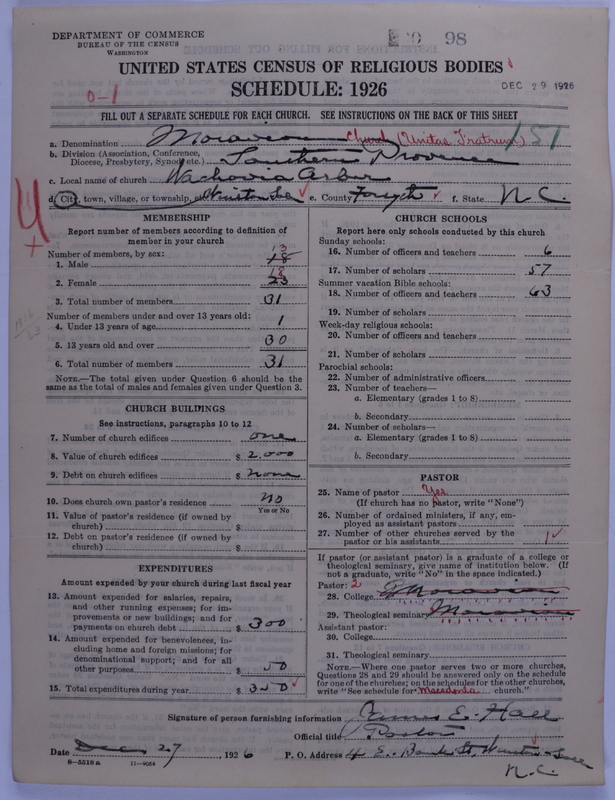 DEPARTMENT OF COMMERCE
BUREAU OF THE CENSUS
WASHINGTON
98
UNITED STATES CENSUS OF RELIGIOUS BODIES
DEC 29 1926
SCHEDULE: 1926
0-1
FILL OUT A SEPARATE SCHEDULE FOR EACH CHURCH. SEE INSTRUCTIONS ON THE BACK OF THIS SHEET
151
a. Denomination Moravian Church (Unitas Fratrum)
b. Division (Association, Conference, Diocese, Presbytery, Synod, etc.) Southern Province
c. Local name of church Wachovia Arbor
d. City, town, village, or township, Winston Sa e. County Forsyth f. State N.C.
4
x
MEMBERSHIP
Report number of members according to definition of member in your church
Number of members, by sex:
1. Male 18 13
2. Female 23 18
3. Total number of members 31
Number of members under and over 13 years old:
4. Under 13 years of age 1
5. 13 years old and over 30
6. Total number of members 31
NOTE.—The total given under Question 6 should be the same as the total of males and females given under Question 3.
CHURCH BUILDINGS
See instructions, paragraphs 10 to 12
7. Number of church edifices one
8. Value of church edifices $ 2,000
9. Debt on church edifices $ none
10. Does church own pastor's residence No
Yes or No
11. Value of pastor's residence (if owned by church) $
12. Debt on pastor's residence (if owned by church) $
EXPENDITURES
Amount expended by your church during last fiscal year
13. Amount expended for salaries, repairs, and other running expenses; for improvements or new buildings; and for payments on church debt $ 300
14. Amount expended for benevolences, including home and foreign missions; for denominational support; and for all other purposes $ 50
15. Total expenditures during year $ 350
CHURCH SCHOOLS
Report here only schools conducted by this church
Sunday schools:
16. Number of officers and teachers 6
17. Number of scholars 57
Summer vacation Bible schools:
18. Number of officers and teachers 63
19. Number of scholars
Week-day religious schools:
20. Number of officers and teachers
21. Number of scholars
Parochial schools:
22. Number of administrative officers
23. Number of teachers—
a. Elementary (grades 1 to 8)
b. Secondary
24. Number of scholars—
a. Elementary (grades 1 to 8)
b. Secondary
PASTOR
25. Name of pastor Yes
(If church has no pastor, write "None")
26. Number of ordained ministers, if any, employed as assistant pastors
27. Number of other churches served by the pastor or his assistants 1
If pastor (or assistant pastor) is a graduate of a college or theological seminary, give name of institution below. (If not a graduate, write "No" in the space indicated.)
Pastor: 2
28. College Moravian
29. Theological seminary Moravian
Assistant pastor:
30. College
31. Theological seminary
NOTE.—Where one pastor serves two or more churches, Questions 28 and 29 should be answered only on the schedule for one of the churches; on the schedules for the other churches, write "See schedule for Macedonia church."
Signature of person furnishing information James E. Hall
Official title Pastor
Date Dec 27, 1926 P. O. Address 4 E. Bank St, Winston-Salem
N.C.
8—5518 a 11—9054